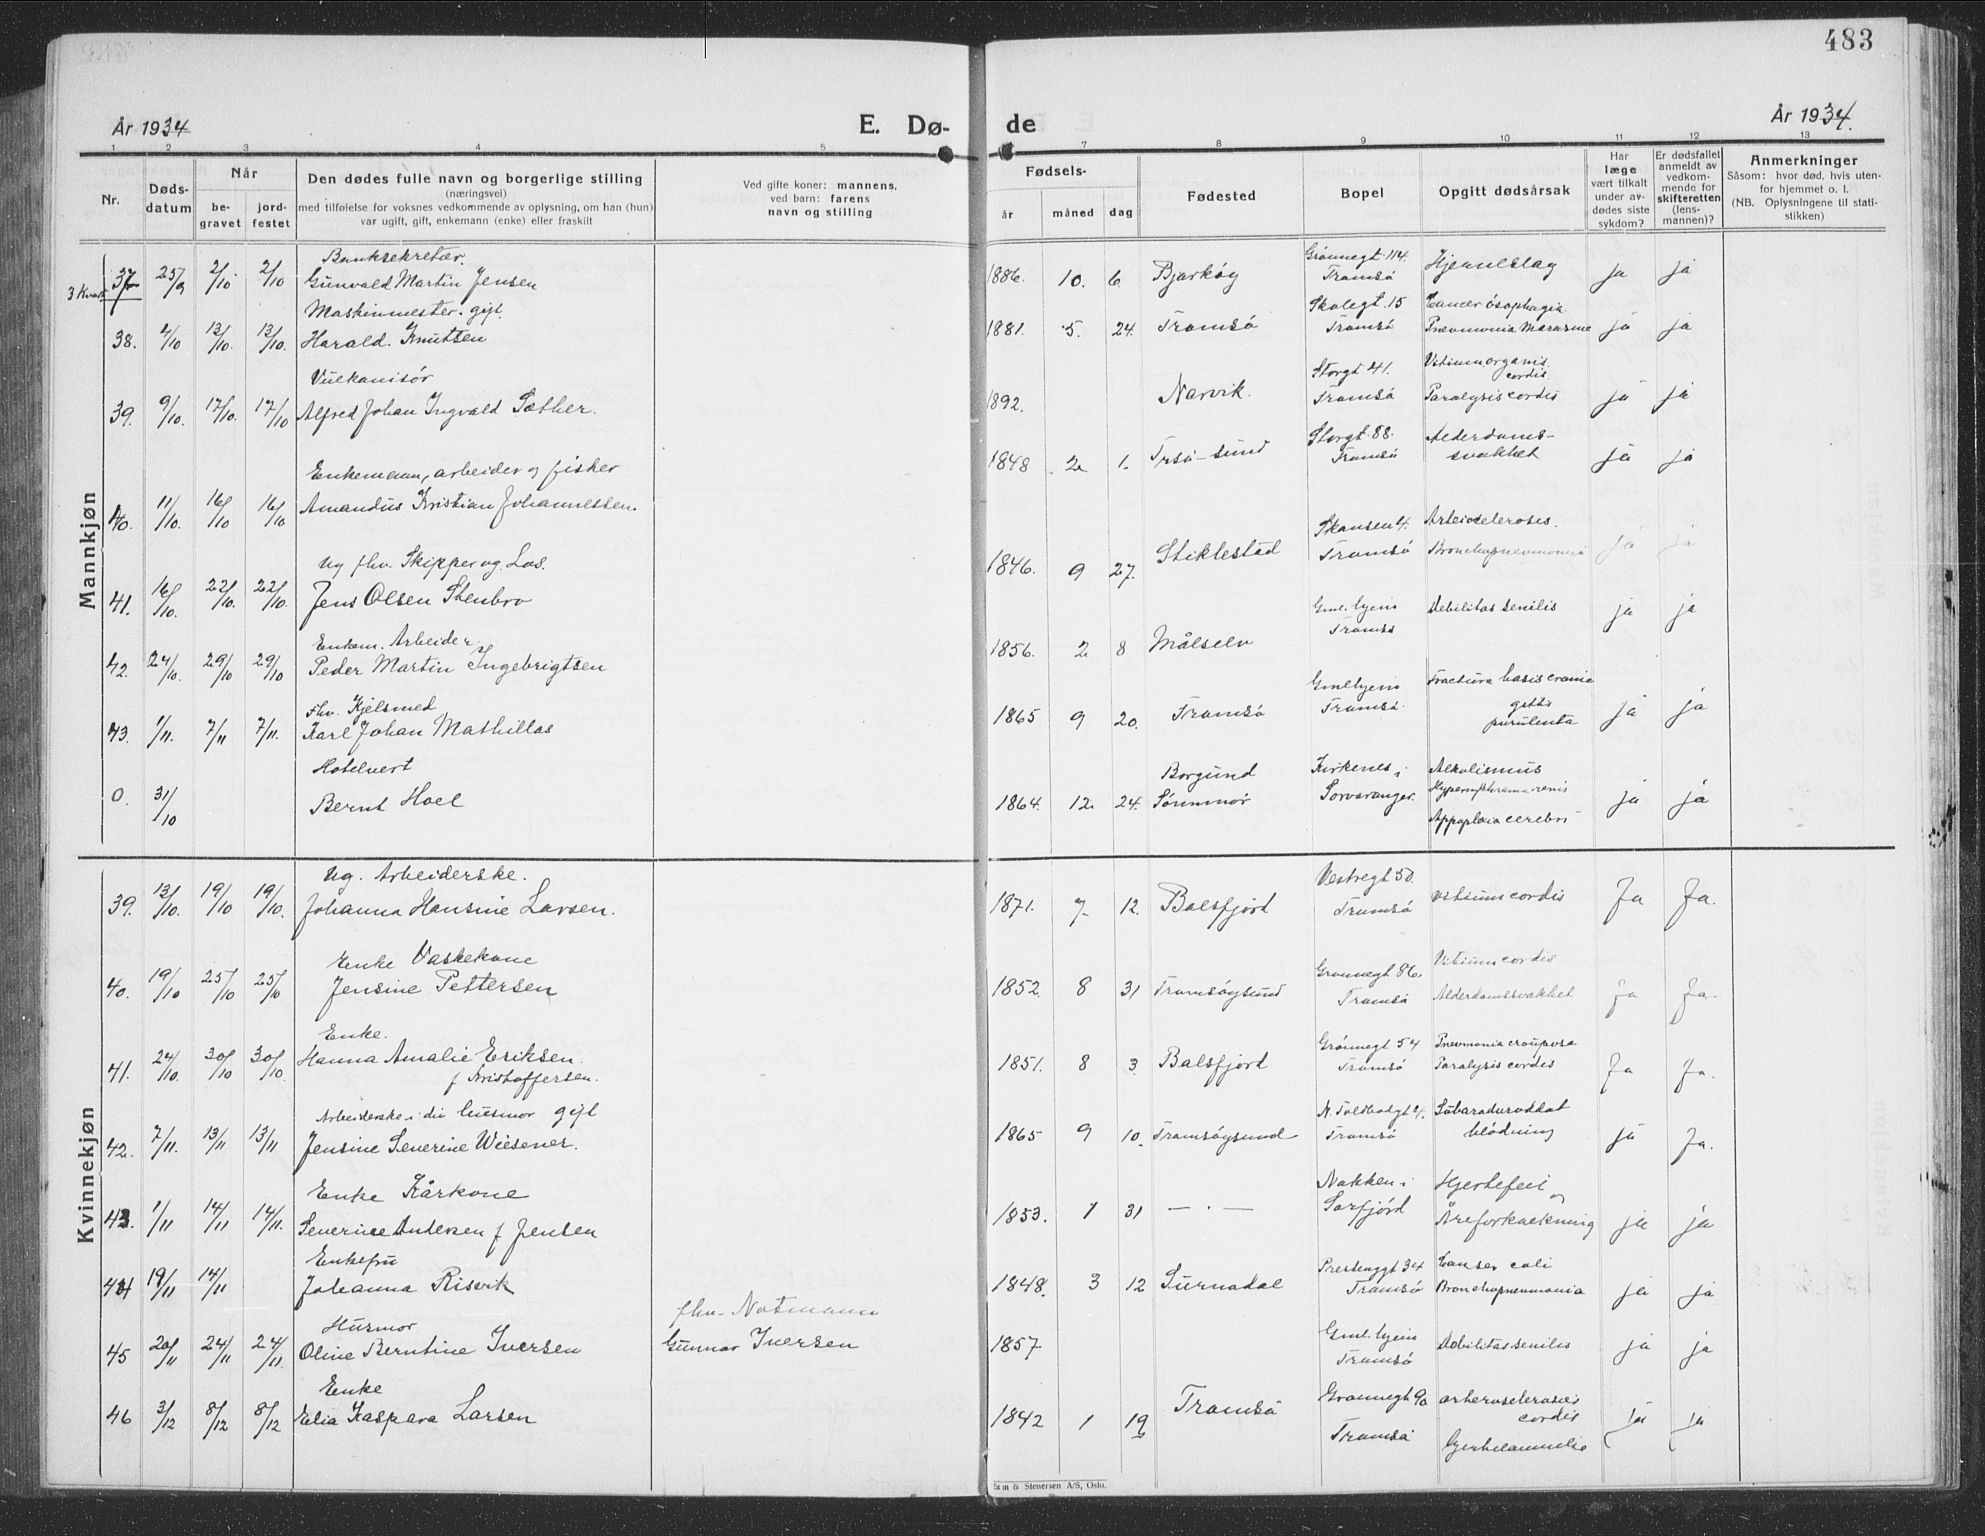 483
År 1934
E. Dø-
de
År 1934.
1 2 3 4 5 7 8 9 10 11 12 13
Nr.
Døds-
datum
Når
be-
gravet
jord-
festet
Den dødes fulle navn og borgerlige stilling
(næringsvei)
med tilføielse for voksnes vedkommende av oplysning, om han (hun)
var ugift, gift, enkemann (enke) eller fraskilt
Ved gifte koner: mannens,
ved barn: farens
navn og stilling
Fødsels-
år måned dag
Fødested
Bopel
Opgitt dødsårsak
Har
læge
vært tilkalt
under av-
dødes siste
sykdom?
Er dødsfallet
anmeldt av
vedkom-
mende for
skifteretten
(lens-
mannen)?
Anmerkninger
Såsom: hvor død, hvis uten-
for hjemmet o. l.
(NB. Oplysningene til stati-
stikken)
Mannkjøn
Banksekretær.
3 Kvart 37 25/9 2/10 2/10 Gunvald Martin Jensen 1886. 10. 6 Bjarkøy Grønnegt. 114 Tromsø Hjerneslag ja ja
Maskinmester. gift.
38. 4/10 13/10. 13/10. Harald. Knutsen 1881. 5. 24. Tromsø Skolegt. 15 Tromsø Cancer øsophagia. Pnevmonia Marasme ja ja
Vulkanisør
39. 9/10. 17/10. 17/10 Alfred Johan Ingvald Sæther. 1892. Narvik. Storgt 41. Tromsø Vitium organis cordis. Paralysis cordis ja ja
Enkemann, arbeider og fisker
40. 11/10. 16/10 16/10 Amandus Kristian Johannessen. 1848 2 1. Trsø-sund Storgt. 88. Tromsø Alderdoms- svakhet ja ja
Ug fhv. Skipper og Los.
41. 16/10. 22/10. 22/10. Jens Olsen Stenbro 1846. 9 27. Stiklestad Skansen 4. Tromsø Arteiosclerosis. Bronchopneumonia ja ja
Enkem. Arbeider
42. 24/10. 29/10 29/10 Peder Martin Ingebrigtsen 1856. 2 8 Målselv Gml. hjem Tromsø Debilitas senilis ja ja
Fhv. Kjelsmed
43. 1/11. 7/11 7/11. Karl Johan Mathillas 1865 9 20. Tromsø Gmlhjem Tromsø. Fractura basis cranie purulenta ja ja
Hotelvert
0. 31/10 Bernt Hoel 1864. 12 24. Borgund Sönmør Kirkenes i Sørvaranger. Alkolismus Appoplexia cerebri ja ja
Kvinnekjøn
Ug. Arbeiderske.
39. 13/10. 19/10 19/10. Johanna Hansine Larsen. 1871. 7 12. Balsfjord Vestregt 50. Tromsø Vitium cordis Ja Ja.
Enke Vaskekone
40. 19/10 25/10 25/10 Jensine Pettersen 1852. 8 31 Tromsøysund Grønnegt 86. Tromsø Vitium cordis Alderdomssvakhet Ja Ja.
Enke.
41. 24/10. 30/10 30/10. Hanna Amalie Eriksen.
f Kristoffersen. 1851. 8 3. Balsfjord Grønnegt 54 Tromsø Pnevmonia croupøsa Paralysis cordis Ja Ja.
Arbeiderske i div husmor gift
42. 7/11. 13/11 13/11 Jensine Severine Wiesener. 1865 9 10. Tromsøysund N. Toldbodgt 4. Tromsø blødning ja Ja.
Enke Kårkone
43. 1/11 14/11 14/11. Severine Andersen f Jensen 1853. 1 31 — . — Nakken i Sørfjord Hjertefeil og Åreforkalkning ja ja
Enkefru
44 19/11 14/11 Johanna Risvik 1848. 3 12 Surnadal Prestenggt 34 Tromsø Canser coli Bronchopneumonia ja ja
Husmor
45 20/11 24/11 24/11. Oline Berntine Iversen fhv. Notmann Gunnar Iversen 1857 Gml. hjem Tromsø Debilitas senilis ja ja
Enke
46 3/12 8/12 8/12 Kaspara Larsen 1842 1 19 Tromsø Grønnegt 90 Tromsø arteriosclerosis cordis ja ja
Stenersen A/S, Oslo.